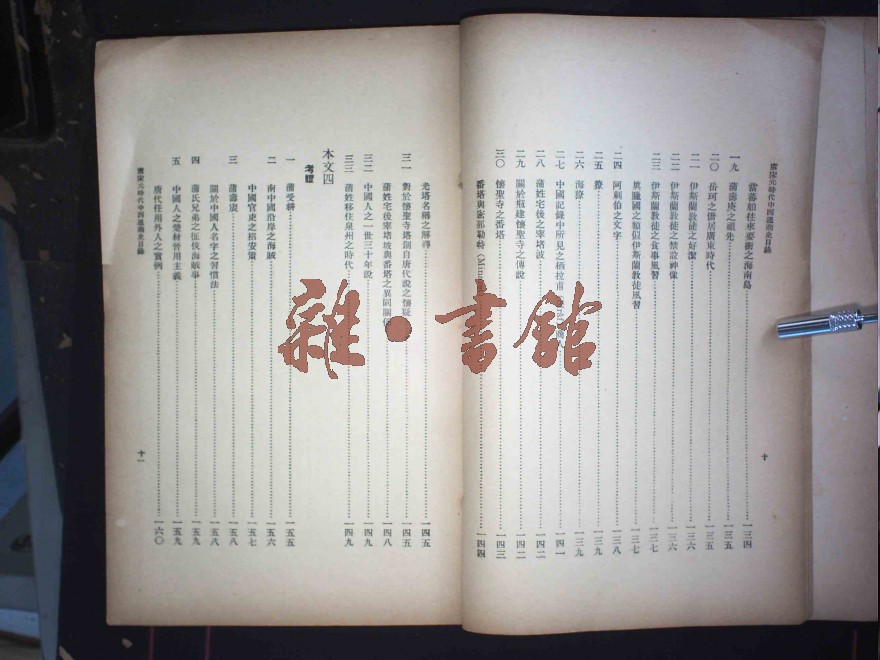 唐宋元時代中西通商史目錄
當蕃舶往來要衝之海南島……一三四
一九 蒲壽庚之祖先……一三五
二〇 岳珂之僑居廣東時代……一三五
二一 伊斯蘭教徒之好潔……一三六
二二 伊斯蘭教徒之禁設神像……一三六
二三 伊斯蘭教徒之食事風習……一三七
真臘國之類似伊斯蘭教徒風習……一三七
二四 阿剌伯之文字……一三八
二五 獠……一三九
二六 海獠……一三九
二七 中國記錄中所見之……一四一
二八 蒲姓宅後之窣堵波……一四二
二九 關於瓶建懷聖寺之傳說……一四二
三〇 懷聖寺之番塔……一四三
番塔與密那勒特……一四四
十
光塔名稱之解釋……一四五
三一 對於懷聖寺塔創自唐代說之懷疑……一四五
蒲姓宅後窣堵坡與番塔之異同關係……一四八
三二 中國人之一世三十年說……一四九
三三 蒲姓移住泉州之時代……一四九
本文四
考證
一 蒲受耕……一五五
二 南中國沿岸之海賊……一五六
中國官吏之招安策……一五七
三 蒲壽宬……一五八
關於中國人名字之習慣法……一五八
四 蒲氏兄弟之征伐海賊事……一五九
五 中國人之楚材晉用主義……一五九
唐代任用外人之實例……一六〇
唐宋元時代中西通商史目錄
十一
雜·書館